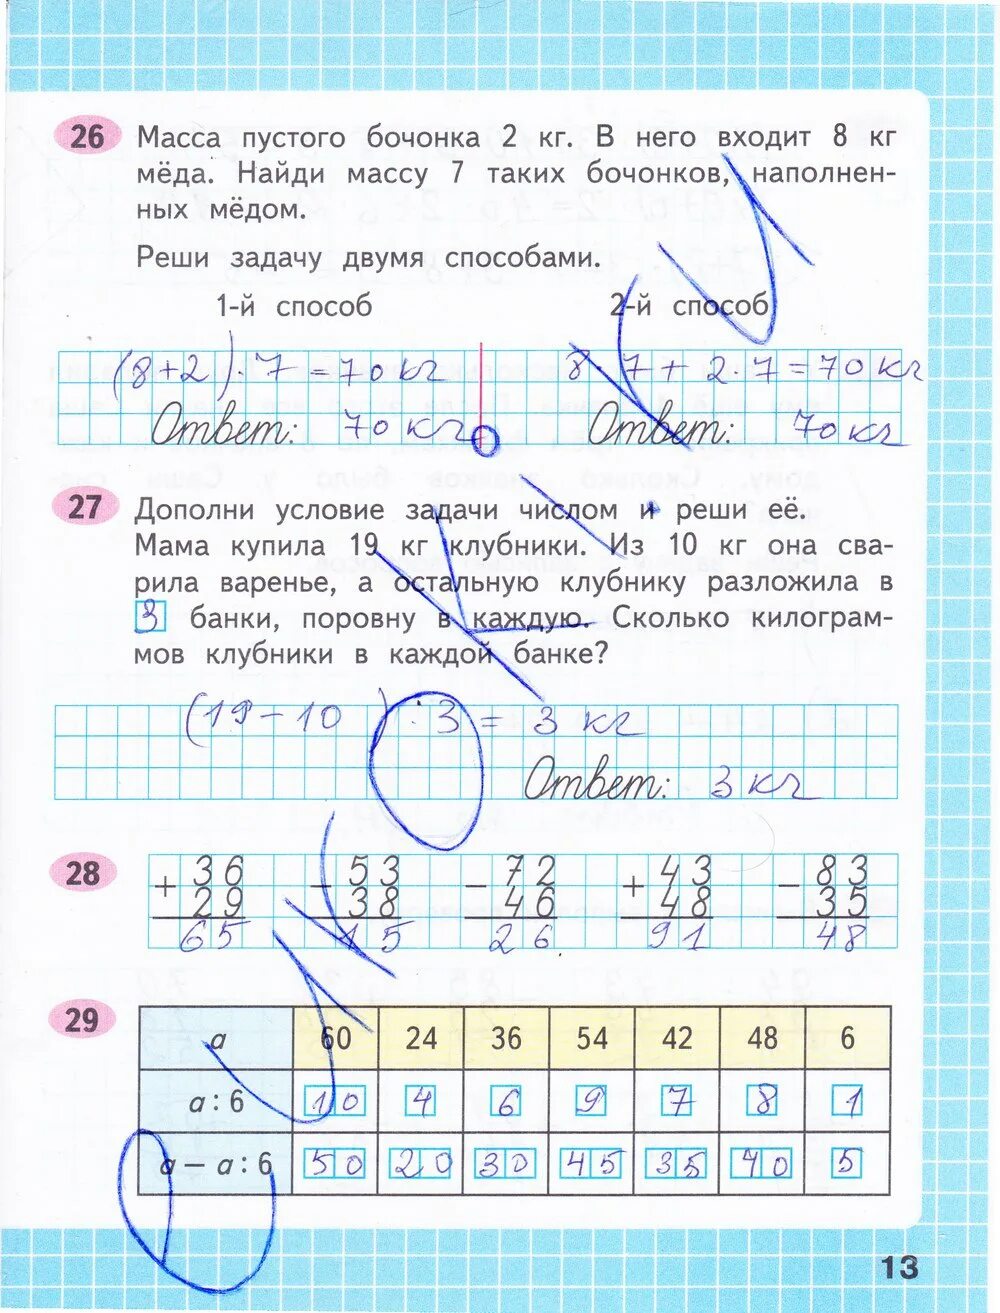 26 Масса пустого бочонка 2 кг. В него входит 8 кг
мёда. Найди массу 7 таких бочонков, наполнен-
ных мёдом.
Реши задачу двумя способами.
1-й способ 2-й способ
(8+2)·7=70 кг 8·7+2·7=70 кг
Ответ: 70 кг Ответ: 70 кг
27 Дополни условие задачи числом и реши её.
Мама купила 19 кг клубники. Из 10 кг она сва-
рила варенье, а остальную клубнику разложила в
3 банки, поровну в каждую. Сколько килограм-
мов клубники в каждой банке?
(19-10):3=3 кг
Ответ: 3 кг
28 +36 -53 -72 +43 -83
29 38 46 48 35
65 15 26 91 48
29 a 60 24 36 54 42 48 6
a:6 10 4 6 9 7 8 1
a-a:6 50 20 30 45 35 40 5
13